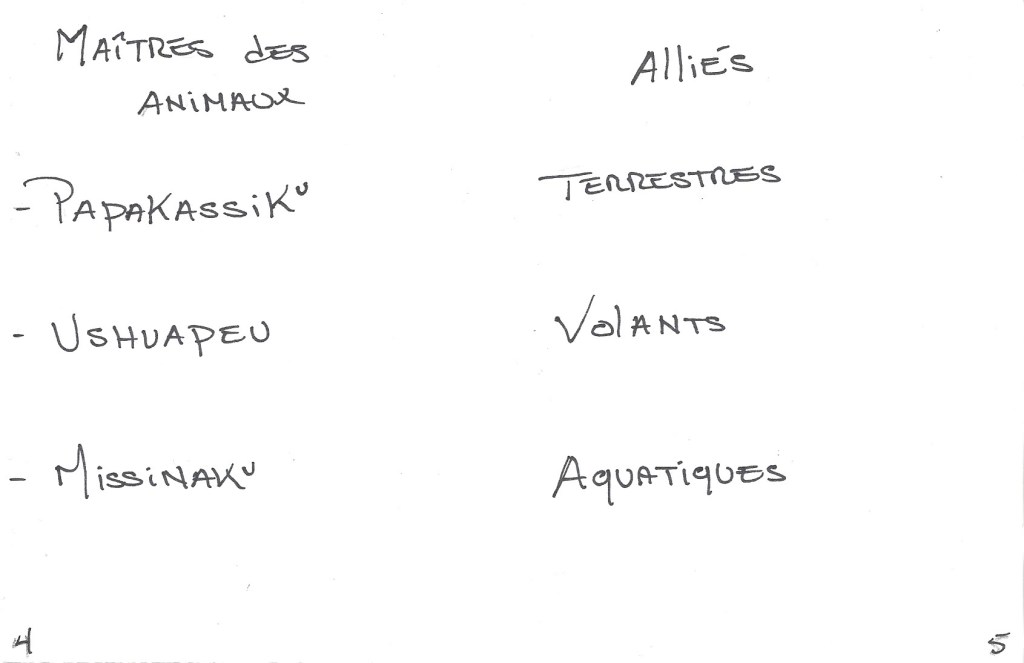 MAÎTRES dES
ANiMAUX
- PAPAKASSiKᵁ
- USHUAPEU
- MiSSiNAKᵁ
4
AlliÉS
TERRESTRES
VolANTS
AqUATiqUES
5